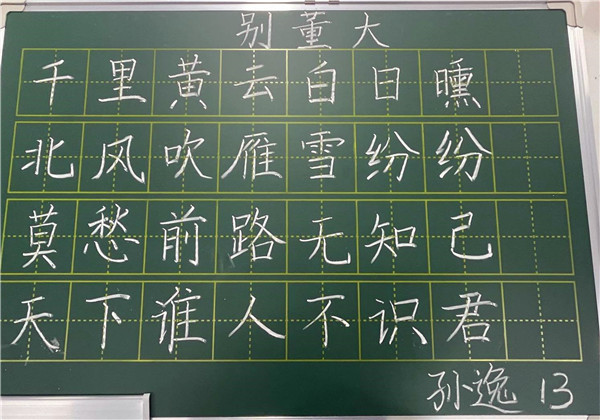 别董大
千里黄云白日曛
北风吹雁雪纷纷
莫愁前路无知己
天下谁人不识君
孙逸 13